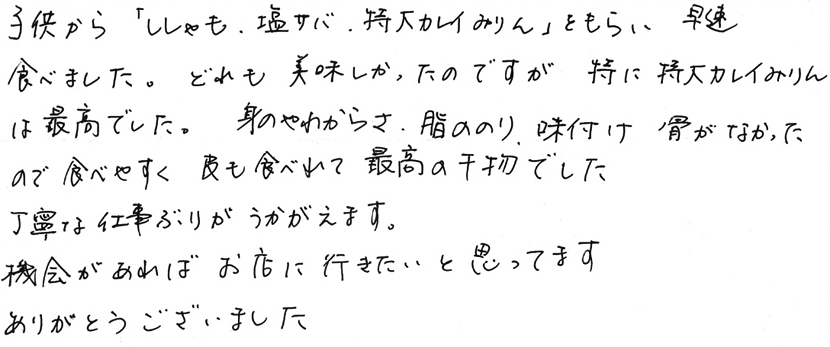 子供から「ししゃも．塩サバ．特大カレイみりん」ともらい 早速
食べました。 どれも 美味しかったのですが 特に 特大カレイみりん
は最高でした。 身のやわからさ．脂ののり．味付け 骨がなかった
ので 食べやすく 皮も食べれて 最高の干物でした
丁寧な仕事ぶりが うかがえます。
機会があれば お店に 行きたいと思ってます
ありがとうございました